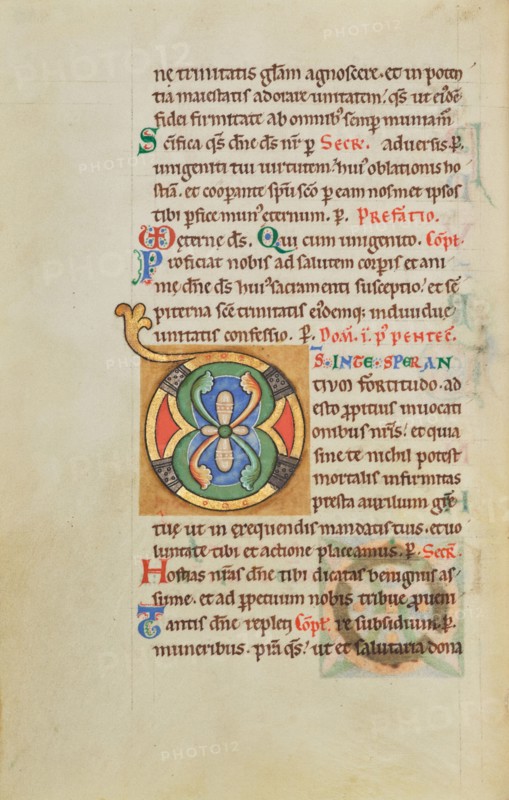 nę trinitatis gl̄am agnoscere. et in poten
tia maiestatis adorare unitatem. qs̄ ut ei̾dē
fidei firmitate ab omnib; semp̄ muniam̄
Scīfica qs̄ dn̄e ds̄ nr̄ p̄ Secr̄. aduersis. P̲.
unigeniti tui uirtutem. hui' oblationis ho
stiā. et coopante sp̄u sc̄o p̲ eam nosmet ipsos
tibi p̲fice mun' eternum. P̲. Prefatio.
ęterne ds̄. Qui cum unigenito. Cōpl̄.
Proficiat nobis ad salutem corp̲is et ani
mę dn̄e ds̄ hui' sacramenti susceptio. et sē
piterna scē trinitatis eidemq; indiuiduę
unitatis confessio. P̲. Dom̄. i. p' pentec̄.
DS̄. INTE SPERAN
tium fortitudo. ad
esto p̲pitius inuocati
onibus nr̄is. et quia
sine te nichil potest
mortalis infirmitas
p̲sta auxilium gr̄e
tuę ut in exequendis mandatis tuis. et uo
luntate tibi et actione placeamus. P̲. Secr̄.
Hostias nr̄as dn̄e tibi dicatas benignus as
sume. et ad p̲petuum nobis tribue p̲uen
Tantis dn̄e repleti Cōpl̄. re subsidium. P̲.
muneribus. p̲sta qs̄. ut et salutaria dona
PHOTO12